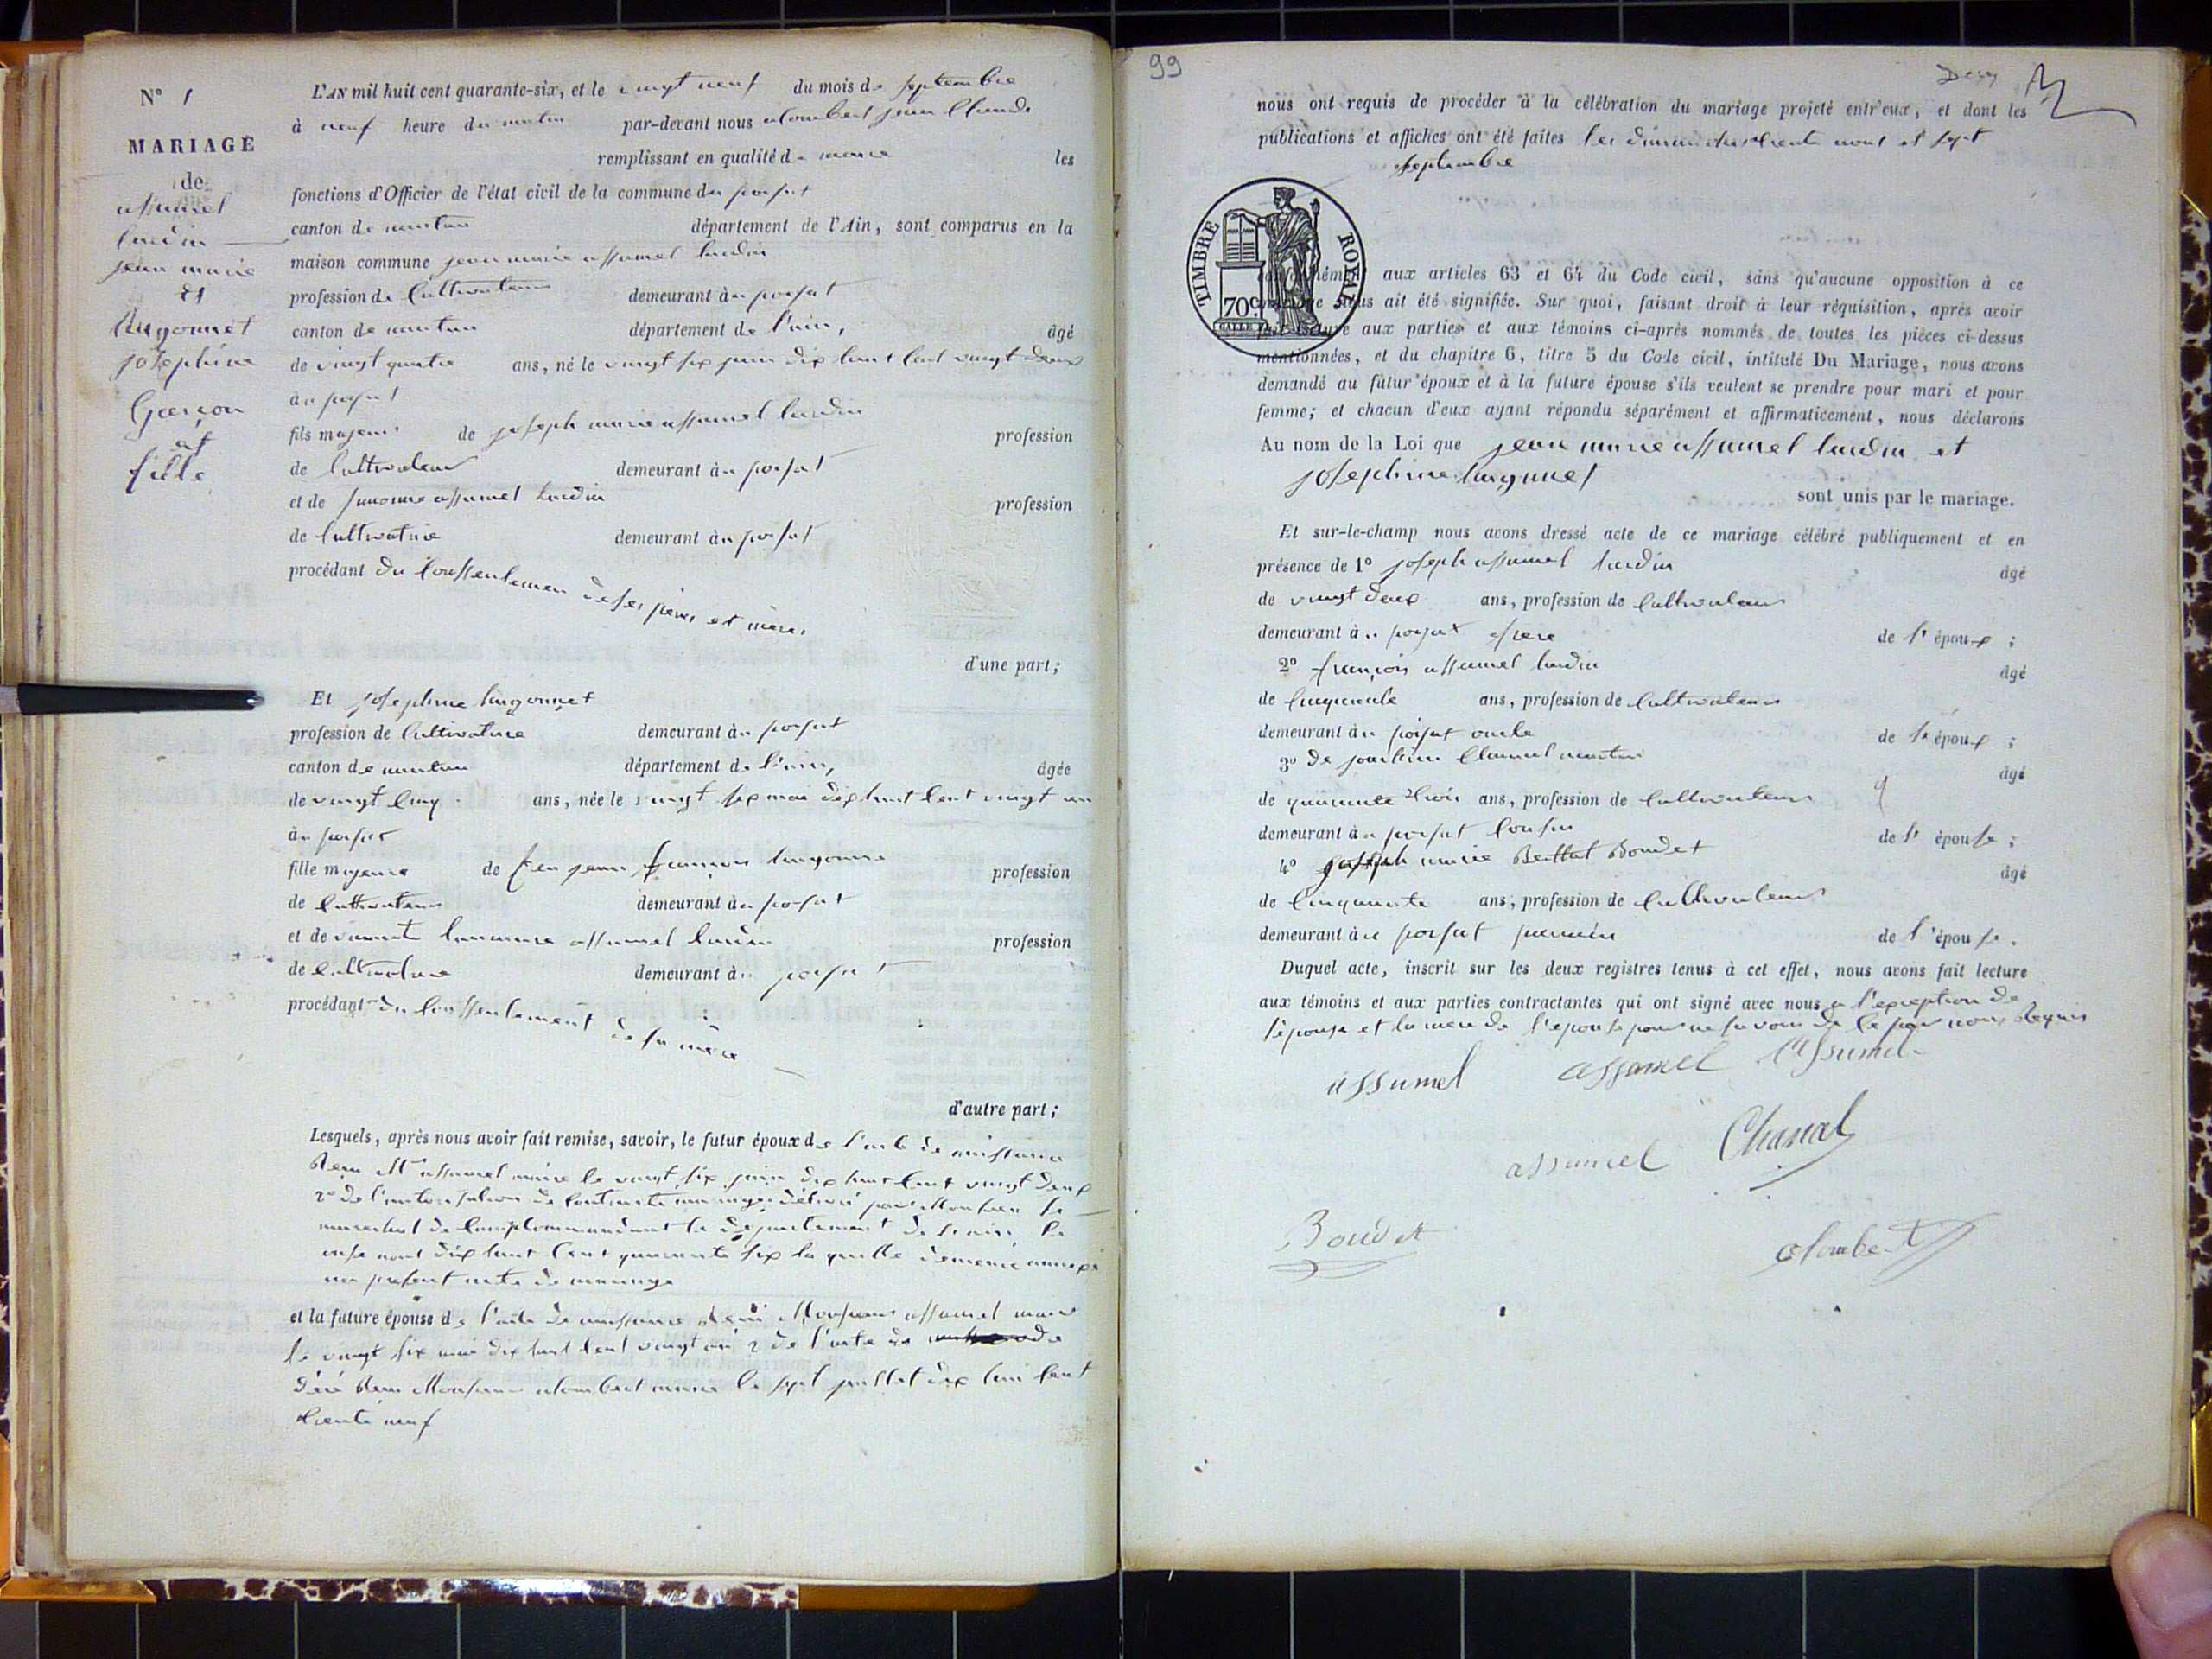 N° 1
MARIAGE
de
assumel
lurdin
jean marie
et
jugonnet
josephine
Garçon
et
fille
L'AN mil huit cent quarante-six, et le vingt neuf du mois de septembre
à neuf heure du matin par-devant nous alombert jean Claude
remplissant en qualité de maire les
fonctions d'Officier de l'état civil de la commune du poizat
canton de nantua département de l'Ain, sont comparus en la
maison commune jean marie assumel lurdin
profession de Cultivateur demeurant au poizat
canton de nantua département de l'ain, âgé
de vingt quatre ans, né le vingt six juin dix huit Cent vingt deux
au poizat
fils majeur de joseph marie assumel lurdin profession
de Cultivateur demeurant au poizat
et de assumel lurdin profession
de Cultivatrice demeurant au poizat
procédant du Conssentemen de ses père et mère
d'une part;
Et josephine jugonnet
profession de Cultivatrice demeurant au poizat
canton de nantua département de l'ain, âgée
de vingt Cinq ans, née le vingt six mai dix huit Cent vingt un
au poizat
fille majeure de feu jean françois profession
de Cultivateur demeurant au poizat
et de assumel lurdin profession
de Cultivatrice demeurant au poizat
procédant du Conssentement de sa mère
d'autre part;
Lesquels, après nous avoir fait remise, savoir, le futur époux de l'acte de naissance
assumel maire le vingt six juin dix huit Cent vingt deux
2° de l'autorisation de Contracté mariage délivré par Monsieur le
marechal de Camp Commandant le département de l'ain le
onze aout dix huit Cent quarante six la quelle demeuré annexé
au present acte de mariage
et la future épouse de l'acte de naissance Monsieur assumel maire
le vingt six mai dix huit Cent vingt un 2 de l'acte de
décé Monsieur alombert maire le sept juillet dix huit Cent
trente neuf
99
nous ont requis de procéder à la célébration du mariage projeté entr'eux, et dont les
publications et affiches ont été faites les dimanches trente aout et sept
septembre
TIMBRE ROYAL
70c
conformément aux articles 63 et 64 du Code civil, sans qu'aucune opposition à ce
mariage nous ait été signifiée. Sur quoi, faisant droit à leur réquisition, après avoir
fait lecture aux parties et aux témoins ci-après nommés de toutes les pièces ci-dessus
mentionnées, et du chapitre 6, titre 5 du Code civil, intitulé Du Mariage, nous avons
demandé au futur époux et à la future épouse s'ils veulent se prendre pour mari et pour
femme; et chacun d'eux ayant répondu séparément et affirmativement, nous déclarons
Au nom de la Loi que jean marie assumel lurdin et
josephine jugonnet
sont unis par le mariage.
Et sur-le-champ nous avons dressé acte de ce mariage célébré publiquement et en
présence de 1° joseph assumel lurdin âgé
de vingt deux ans, profession de Cultivateur
demeurant au poizat frere de l'époux ;
2° françois assumel lurdin âgé
de Cinquante ans, profession de Cultivateur
demeurant au poizat oncle de l'époux ;
3° âgé
de quarante trois ans, profession de Cultivateur
demeurant au poizat Cousin de l'épouse ;
4° joseph marie Berthet Boudet âgé
de Cinquante ans, profession de Cultivateur
demeurant au poizat de l'épouse.
Duquel acte, inscrit sur les deux registres tenus à cet effet, nous avons fait lecture
aux témoins et aux parties contractantes qui ont signé avec nous a l'exception de
l'épouse et la mere de l'epouse pour ne savoir de ce par nous requis
assumel assumel assumel
assumel Chanal
Boudet alombert